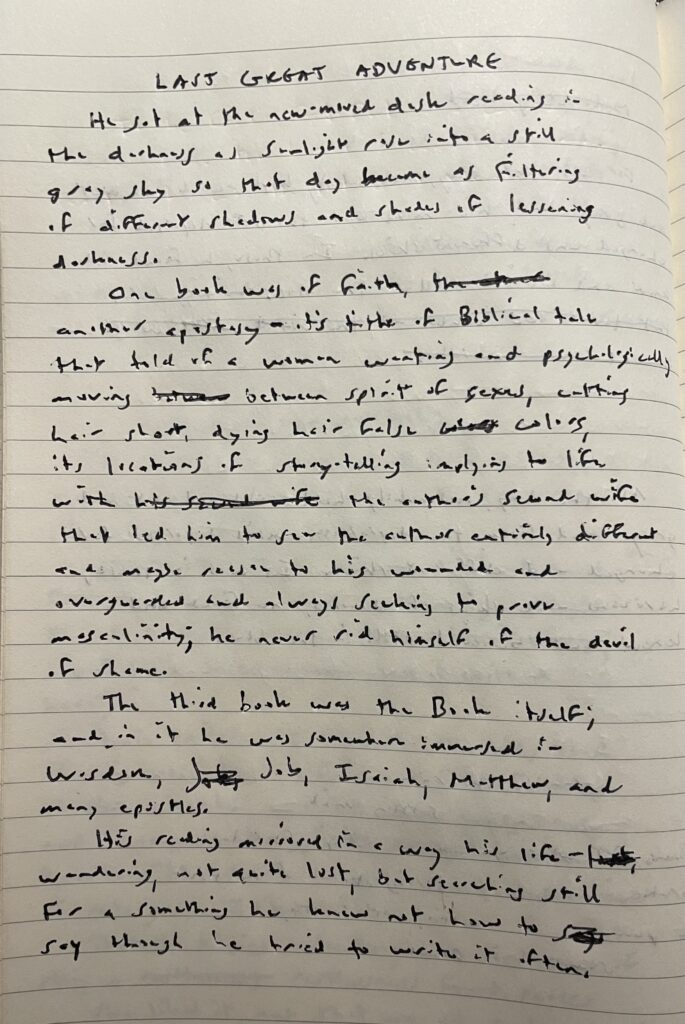 LAST GREAT ADVENTURE
He sat at the new-moved desk reading in
the darkness as sunlight rose into a still
gray sky so that day became as filtering
of different shadows and shades of lessening
darkness.
One book was of faith,
another apostasy - its title of Biblical tale
that told of a woman wanting and psychologically
moving between spirit of sexes, cutting
hair short, dying hair false colors,
its locations of story-telling implying to life
with his second wife the author's second wife
that led him to see the author entirely different
and maybe reason to his wounded and
overguarded and always seeking to prove
masculinity; he never rid himself of the devil
of shame.
The third book was the Book itself;
and in it he was somewhere immersed in
Wisdom, Job, Job, Isaiah, Matthew, and
many epistles.
His reading mirrored in a way his life -
wandering, not quite lost, but searching still
for a something he knew not how to say
say though he tried to write it often.